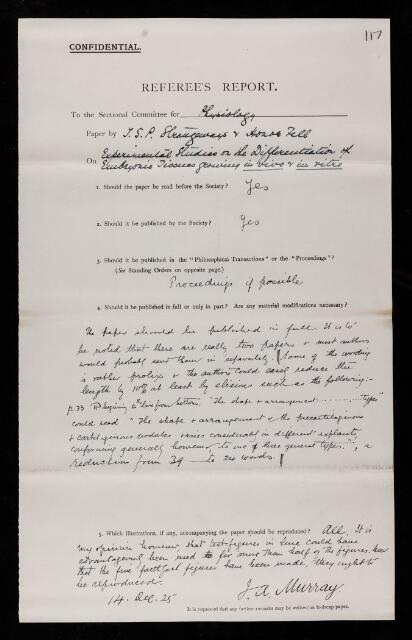 117
CONFIDENTIAL.
REFEREE'S REPORT.
To the Sectional Committee for Physiology
Paper by T.S.P. Strangeways & Honor Fell
On Experimental Studies on the Differentiation of
Embryonic Tissues growing in vivo & in vitro
1. Should the paper be read before the Society? Yes
2. Should it be published by the Society? Yes
3. Should it be published in the "Philosophical Transactions" or the "Proceedings"?
(See Standing Orders on opposite page.)
Proceedings if possible
4. Should it be published in full or only in part? Are any material modifications necessary?
The paper should be published in full. It is to
be noted that there are really two papers & most authors
would probably sent them in separately. Some of the wording
is rather prolix & the authors could easily reduce the
length by 10% at least by elisions such as the following:-
p. 33 Beginning line from bottom. "The shape & arrangement ........ types"
could read "The shape & arrangement of the precartilaginous
& cartilaginous nodules varies considerably in different explants,
conforming generally however, to one of three general types.", a
reduction from 39 to 24 words.
5. Which illustrations, if any, accompanying the paper should be reproduced? All, It is
my opinion however, that text-figures in line could have
advantageously been used for more than half of the figures. Now
that the fine half tone figures have been made, they ought to
be reproduced.
14. Dec. 25
J.A. Murray
It is requested that any further remarks may be written on foolscap paper.